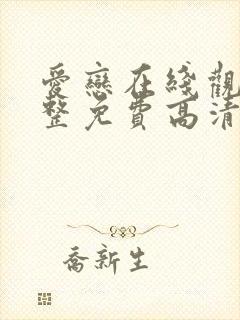 愛戀在綫觀
整免費高清
喬新生